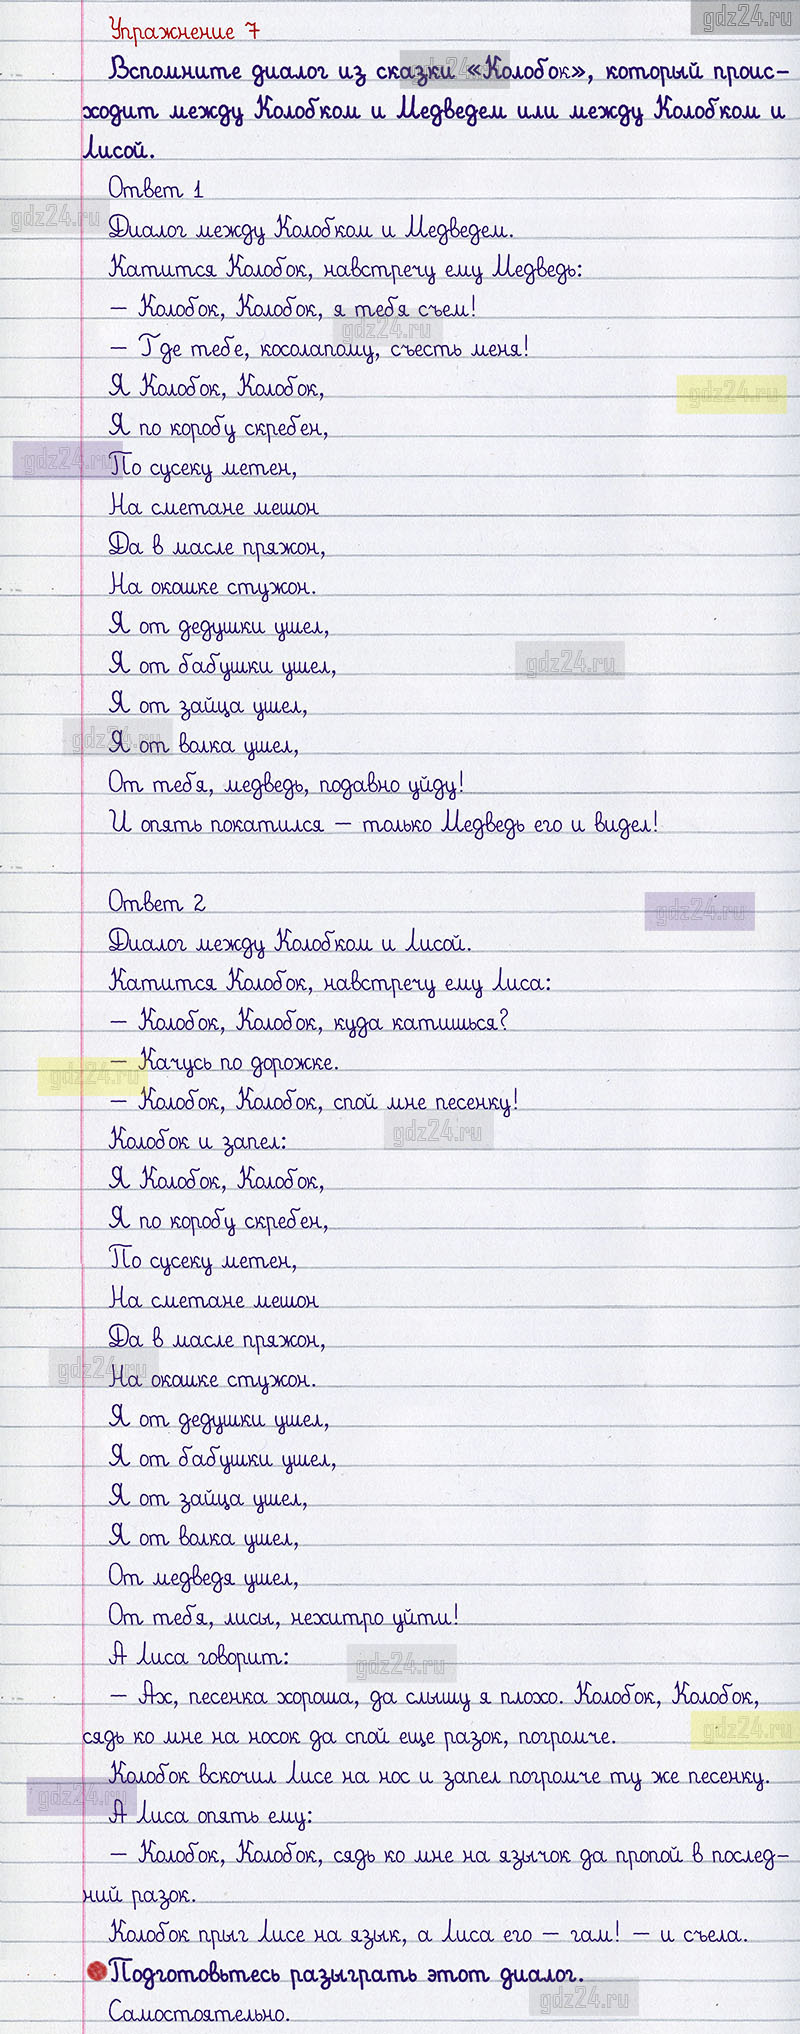 gdz24.ru
Упражнение 7
Вспомните диалог из сказки «Колобок», который проис-
ходит между Колобком и Медведем или между Колобком и
Лисой.
Ответ 1
Диалог между Колобком и Медведем.
Катится Колобок, навстречу ему Медведь:
– Колобок, Колобок, я тебя съем!
– Где тебе, косолапому, съесть меня!
Я Колобок, Колобок,
Я по коробу скребен,
По сусеку метен,
На сметане мешон
Да в масле пряжон,
На окошке стужон.
Я от дедушки ушел,
Я от бабушки ушел,
Я от зайца ушел,
Я от волка ушел,
От тебя, медведь, подавно уйду!
И опять покатился – только Медведь его и видел!
Ответ 2
Диалог между Колобком и Лисой.
Катится Колобок, навстречу ему Лиса:
– Колобок, Колобок, куда катишься?
– Качусь по дорожке.
– Колобок, Колобок, спой мне песенку!
Колобок и запел:
Я Колобок, Колобок,
Я по коробу скребен,
По сусеку метен,
На сметане мешон
Да в масле пряжон,
На окошке стужон.
Я от дедушки ушел,
Я от бабушки ушел,
Я от зайца ушел,
Я от волка ушел,
От медведя ушел,
От тебя, лисы, нехитро уйти!
А Лиса говорит:
– Ах, песенка хороша, да слышу я плохо. Колобок, Колобок,
сядь ко мне на носок да спой еще разок, погромче.
Колобок вскочил Лисе на нос и запел погромче ту же песенку.
А Лиса опять ему:
– Колобок, Колобок, сядь ко мне на язычок да пропой в послед-
ний разок.
Колобок прыг Лисе на язык, а Лиса его – гам! – и съела.
Подготовьтесь разыграть этот диалог.
Самостоятельно.